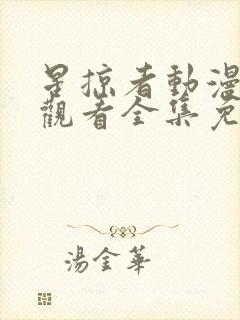 星掠者動漫
觀看全集免
湯金華